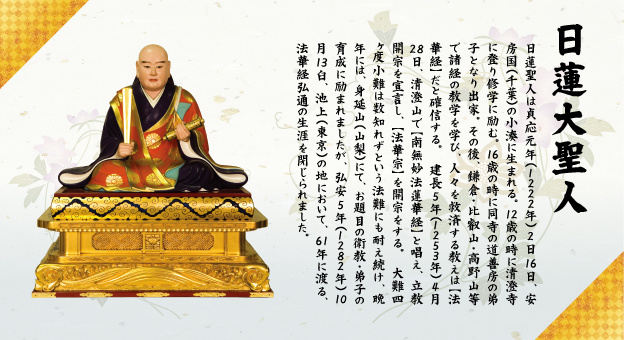 日蓮大聖人
日蓮聖人は貞応元年(1222年)2日16日、安
房国(千葉)の小湊に生まれる。12歳の時に清澄寺
に登り修学に励む。16歳の時に同寺の道善房の弟
子となり出家。その後、鎌倉・比叡山・高野山等
で諸経の教学を学び、人々を救済する教えは【法
華経】だと確信する。 建長5年(1253年)4月
28日、清澄山で【南無妙法蓮華経】と唱え、立教
開宗を宣言し、【法華宗】を開宗をする。 大難四
ヶ度小難は数知れずという法難にも耐え続け、晩
年には、身延山(山梨)にて、お題目の衛教・弟子の
育成に励まれましたが、弘安5年(1282年)10
月13日、池上(東京)の地において、61年に渡る、
法華経弘通の生涯を閉じられました。